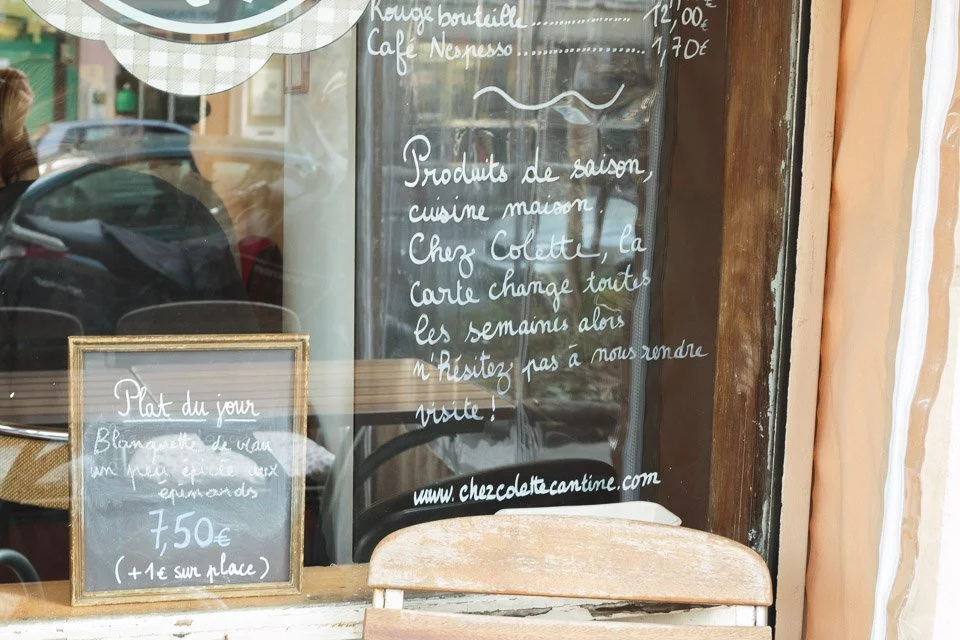 Rouge bouteille .............. 12,00€
Café Nespesso .................. 1,70€
Produits de saison,
cuisine maison.
Chez Colette, la
carte change toutes
les semaines alors
n'hésitez pas à nous rendre
visite !
www.chezcolettecantine.com
Plat du jour
Blanquette de veau
un peu épicée aux
épinards
7,50€
(+1€ sur place)